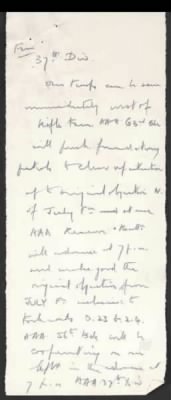 From
37th Div.
Our troops can be seen
immediately west of
Rifle Farm AAA 63rd Bde
will push forward strong
patrols to clear up situation
up to original objective N.
of July Fm and at once
AAA
will advance at 7 p.m.
and make good the
original objective from
JULY Fm inclusive to
road O.23.b.2.4.
AAA 56th Bde will be
cooperating on our
left in the advance at
7 p.m. AAA 37th Div